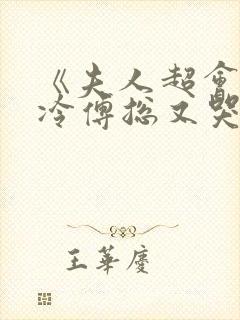 《夫人超會
冷傅總又哭
王華慶